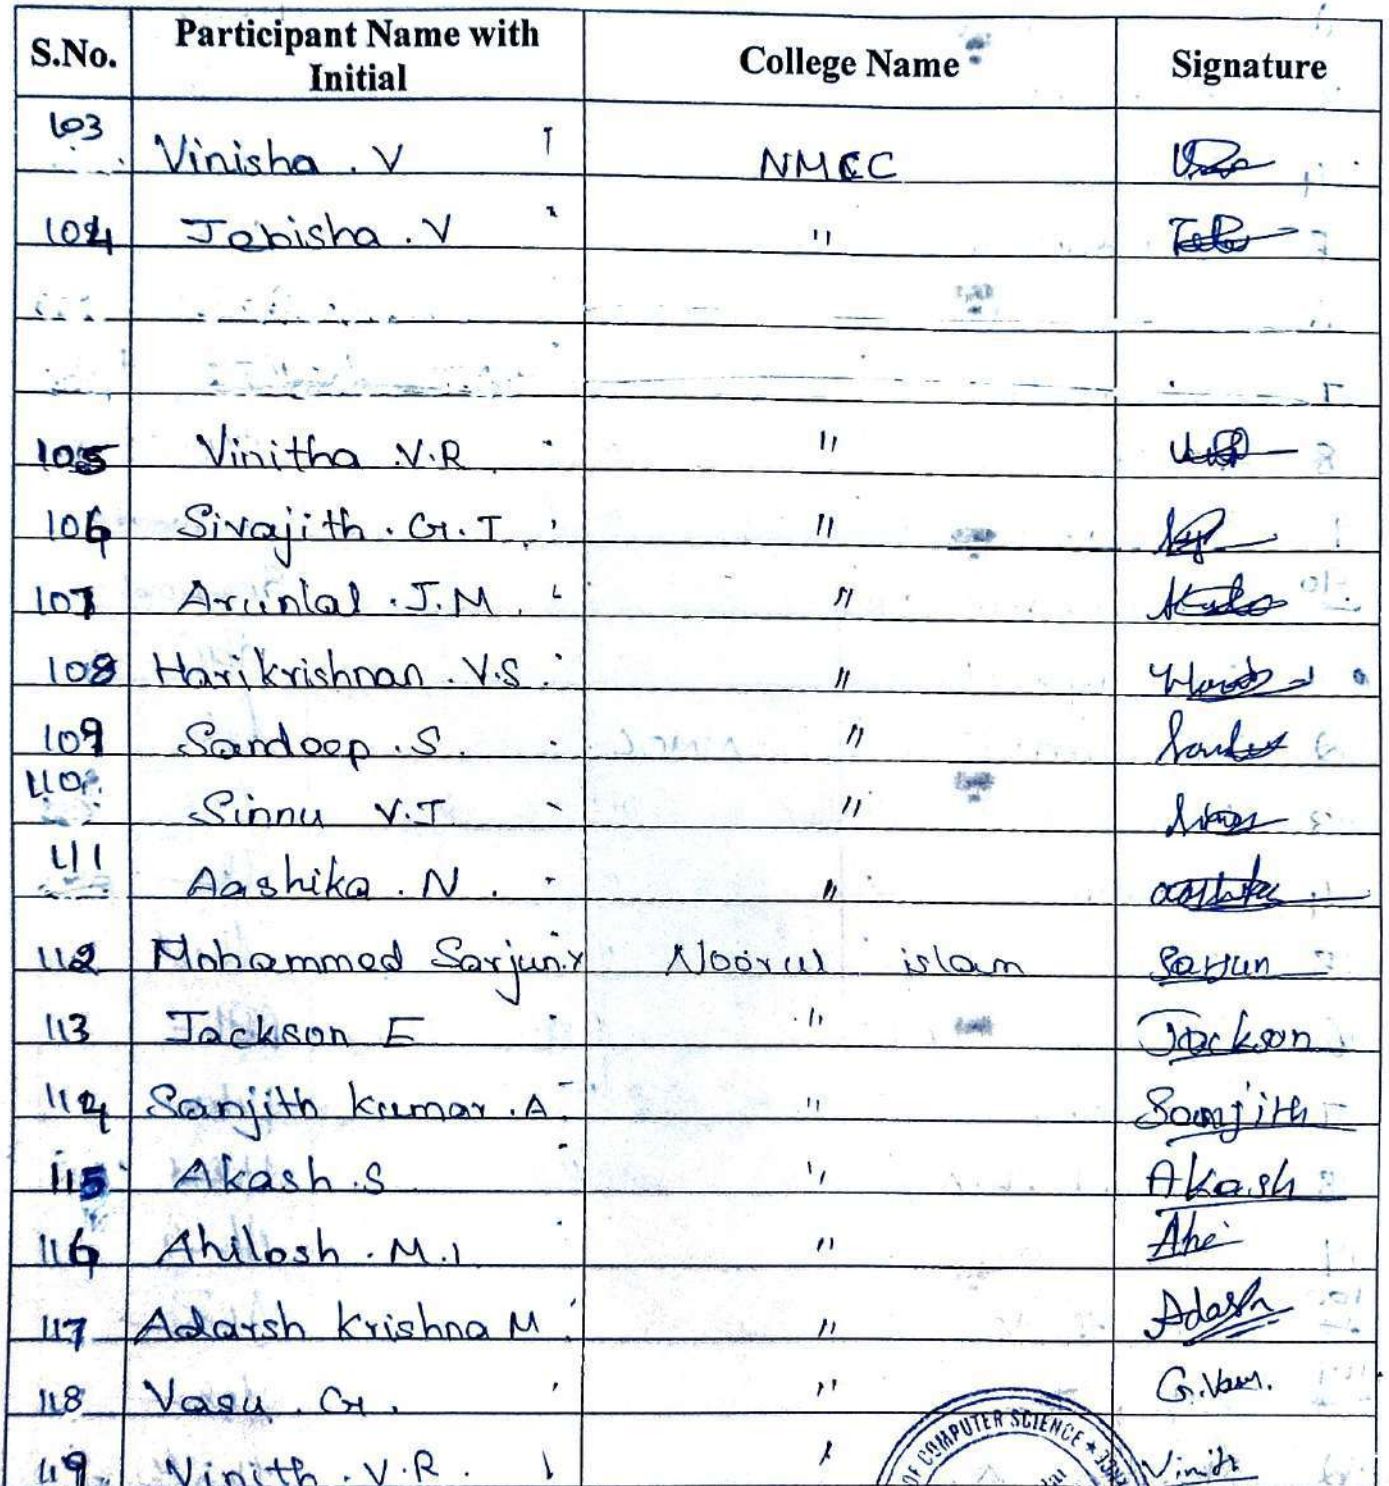 S.No. Participant Name with Initial College Name Signature
103 Vinisha . V NMCC
104 Jebisha . V "
105 Vinitha . V.R "
106 Sivajith . G. T. "
107 Arunlal . J.M. "
108 Harikrishnan . V.S. "
109 Sandeep . S. "
110 Sinnu V.J "
111 Aashika . N . " aashika
112 Mohammed Sarjun.Y Noorul islam Sarjun
113 Jackson E " Jackson
114 Sanjith kumar . A. " Sanjith
115 Akash . S " Akash
116 Ahilosh . M . I " Ahi
117 Adarsh Krishna M " Adarsh
118 Vasu . G . " G. Vasu.
119 Vinith . V . R . " Vinith
OF COMPUTER SCIENCE ★